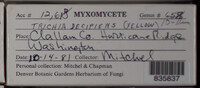 Acc. # 12,618 MYXOMYCETE Genus # 658
TRICHIA DECIPIENS (YELLOW)
Place Clallam Co. Hurricane Ridge
Washington
Date 10-14-81 Collector Mitchel
Personal collection: Mitchel & Chapman
Denver Botanic Gardens Herbarium of Fungi
835837